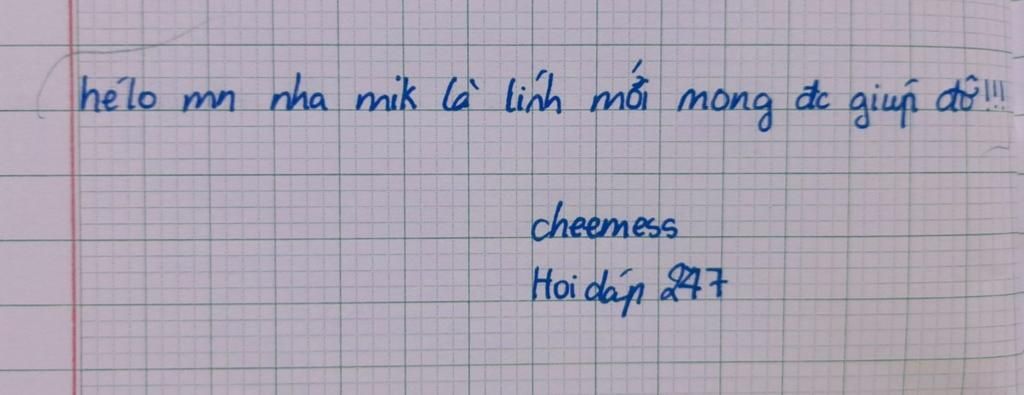 hélo mn nha mik là lính mới mong đc giúp đỡ!!!
cheemess
Hoi dáp 247